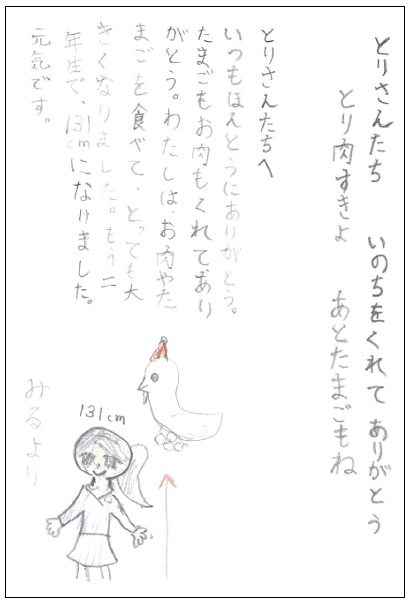 とりさんたち　いのちをくれて　ありがとう
とり肉すきよ　あとたまごもね
とりさんたちへ
いつもほんとうにありがとう。
たまごもお肉もくれてあり
がとう。わたしは、お肉やた
まごを食べて、とっても大
きくなりました。もう二
年生で、131cmになりました。
元気です。
みるより
131cm